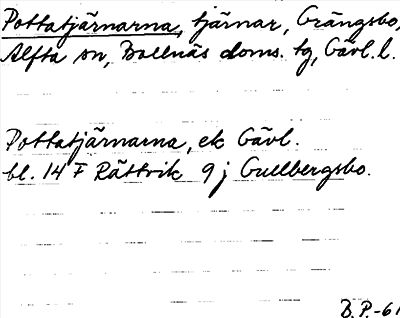 Pottatjärnarna, tjärnar, Grängsbo,
Alfta sn, Bollnäs doms. tg, Gävl. l.
Pottatjärnarna, ek Gävl.
bl. 14 F Rättvik 9 j Gullbergsbo.
B.P.-61